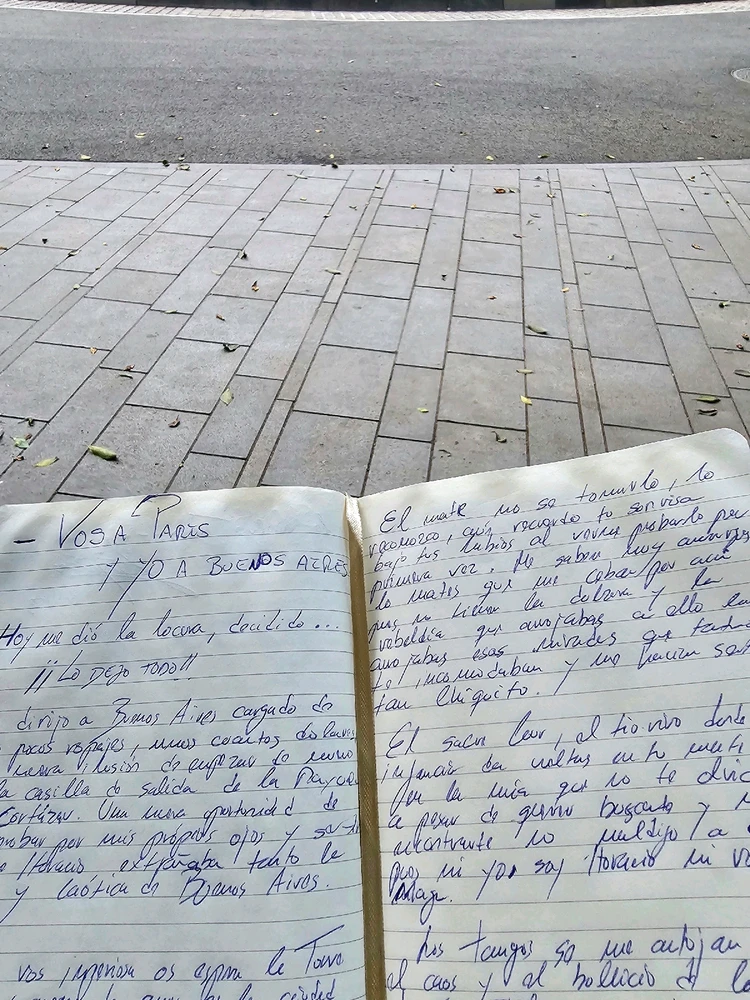 - VOS A PARIS
Y YO A BUENOS AIRES
Hoy me dió la locura, decidido...
¡¡LO DEJO TODO!!
dirijo a Buenos Aires cargado de
pocos ropajes, unos cuantos dolares
nueva ilusión de empezar de nuevo
la casilla de salida de la Rayuela
Cortázar. Una nueva oportunidad de
probar por mis propios ojos y
Horacio extrañaba tanto la
y caótica de Buenos Aires.
vos os espera la Torre
de la ciudad
El mate no se tomarlo, lo
reconozco, aún recuerdo tu sonrisa
bajo tus labios al verme probarlo por
primera vez. Me saben muy amargos
lo mates que me ceban por aquí
pues no tienen la dulzura y la
rebeldía que arrojabas a ello
arrojabas esas miradas que tanto
te incomodaban y me hacían
tan Chiquito.
El saber leer, al tiovivo donde
infancia da vueltas en tu mente
en la mía que no te
a pesar de querer buscarte y
encontrarte no maldigo a
pues ni yo soy Horacio ni
Los tangos se me antojan
al caos y al bullicio de